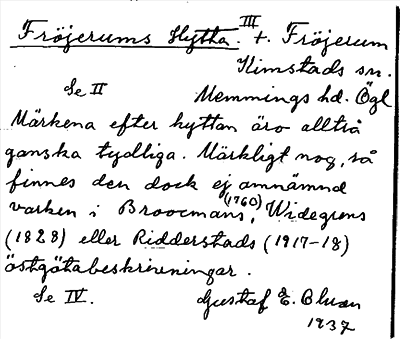 Fröjerums Hytta. III t. Fröjerum
Kimstads sn.
Se II Memmings hd. Ögl
Märkena efter hyttan äro alltså
ganska tydliga. Märkligt nog, så
finnes den dock ej omnämnd
varken i Broocmans (1760), Widegrens
(1828) eller Ridderstads (1917-18)
östgötabeskrivningar.
Se IV. Gustaf E. Bluen
1937